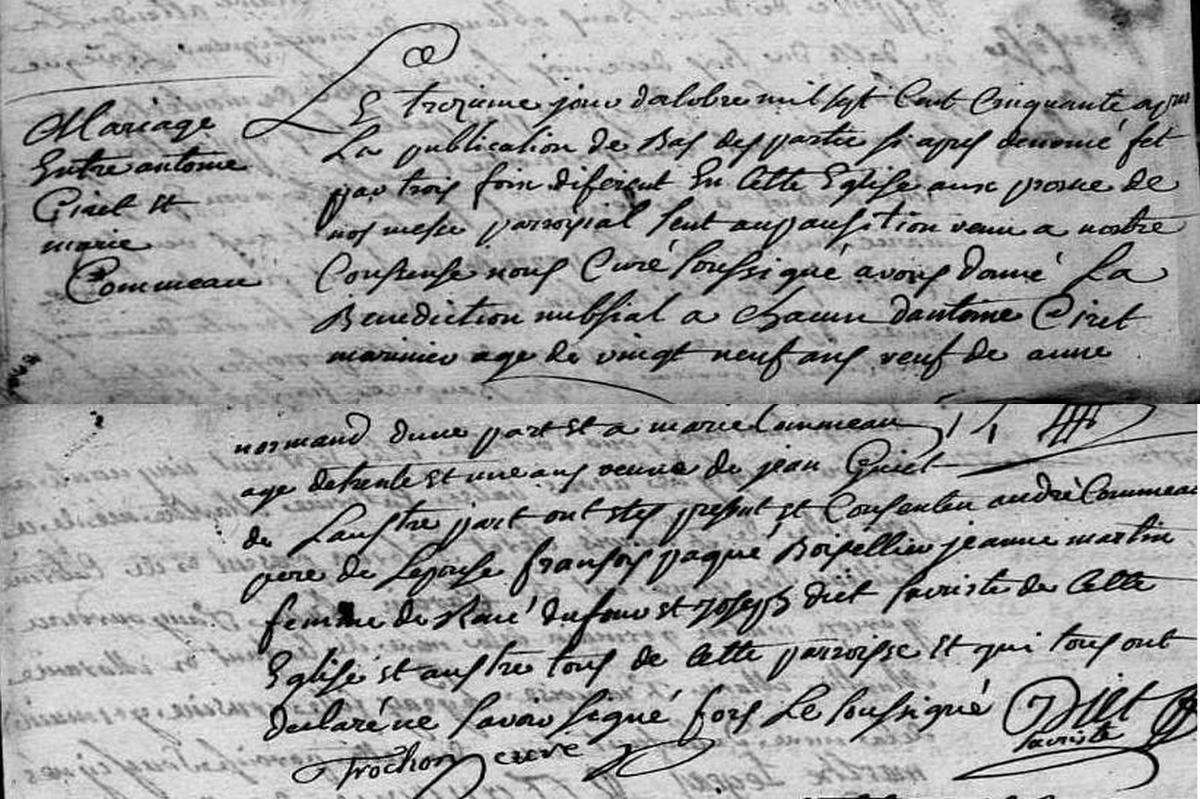 Mariage
Entre antoine
Ciret et
marie
Commeau
Le trozieme jour doctobre mil sept Cent Cinquante apres
La publication de Bas des partie si apres denomé fet
par trois foin diferent En Cette Eglise aux prosne de
nos messe parroisial sent aupausition venu a nostre
Consense nous Curé soussigué avons donné La
Benediction nubsial a chacun dantoine Ciret
marinier age de vingt neuf ans veuf de anne
normand dune part et a marie Commeau
age de trente et une ans veuve de jean
de Laustre part ont estes present et Consenten andré Commeau
pere de Lepouse françois paqué Boisellier jeanne martin
femme de René dufour et Joseph diet sacriste de Cette
Eglise et austre tous de Cette parroisse et qui tous ont
declaré ne savoir signé fors Le soussigué
Diet
sacriste
Trochon curé